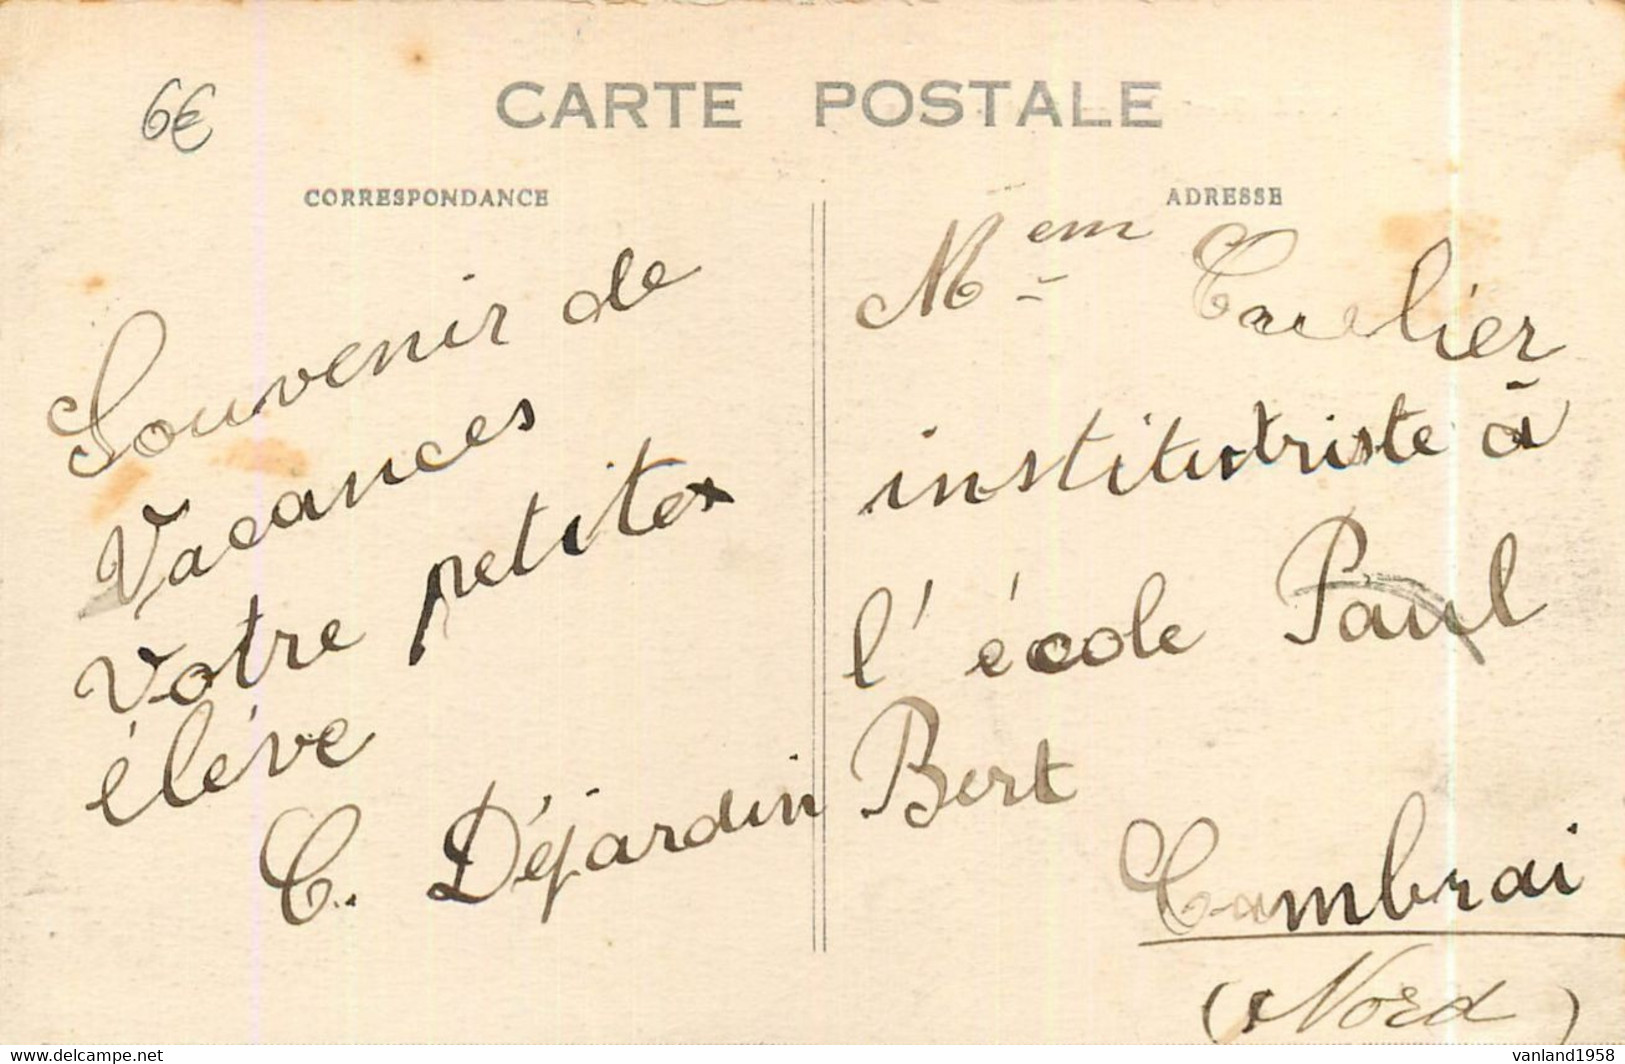 6€
CARTE POSTALE
CORRESPONDANCE
Souvenir de
Vacances
Votre petite
élève
C. Déjardin
ADRESSE
Mem Caulier
institutriste à
l'école Paul
Bert
Cambrai
(Nord)
vanland1958